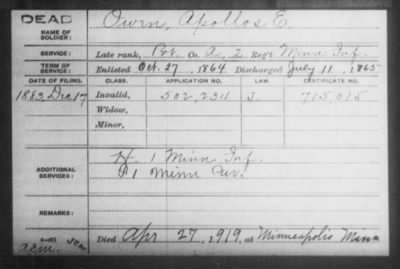 DEAD
NAME OF SOLDIER: Owen, Apollos E.
SERVICE: Late rank, Pvt. Co. A, 2 Reg't Minn Inf.
TERM OF SERVICE: Enlisted Oct. 27, 1864 Discharged July 11, 1865
DATE OF FILING. CLASS. APPLICATION NO. LAW. CERTIFICATE NO.
1883, Dec 17 Invalid, 502,234 J 715,015
Widow,
Minor,
ADDITIONAL SERVICES: H. 1 Minn Inf.
1 Minn
REMARKS:
Died Apr 27, 1919, at Minneapolis Minn